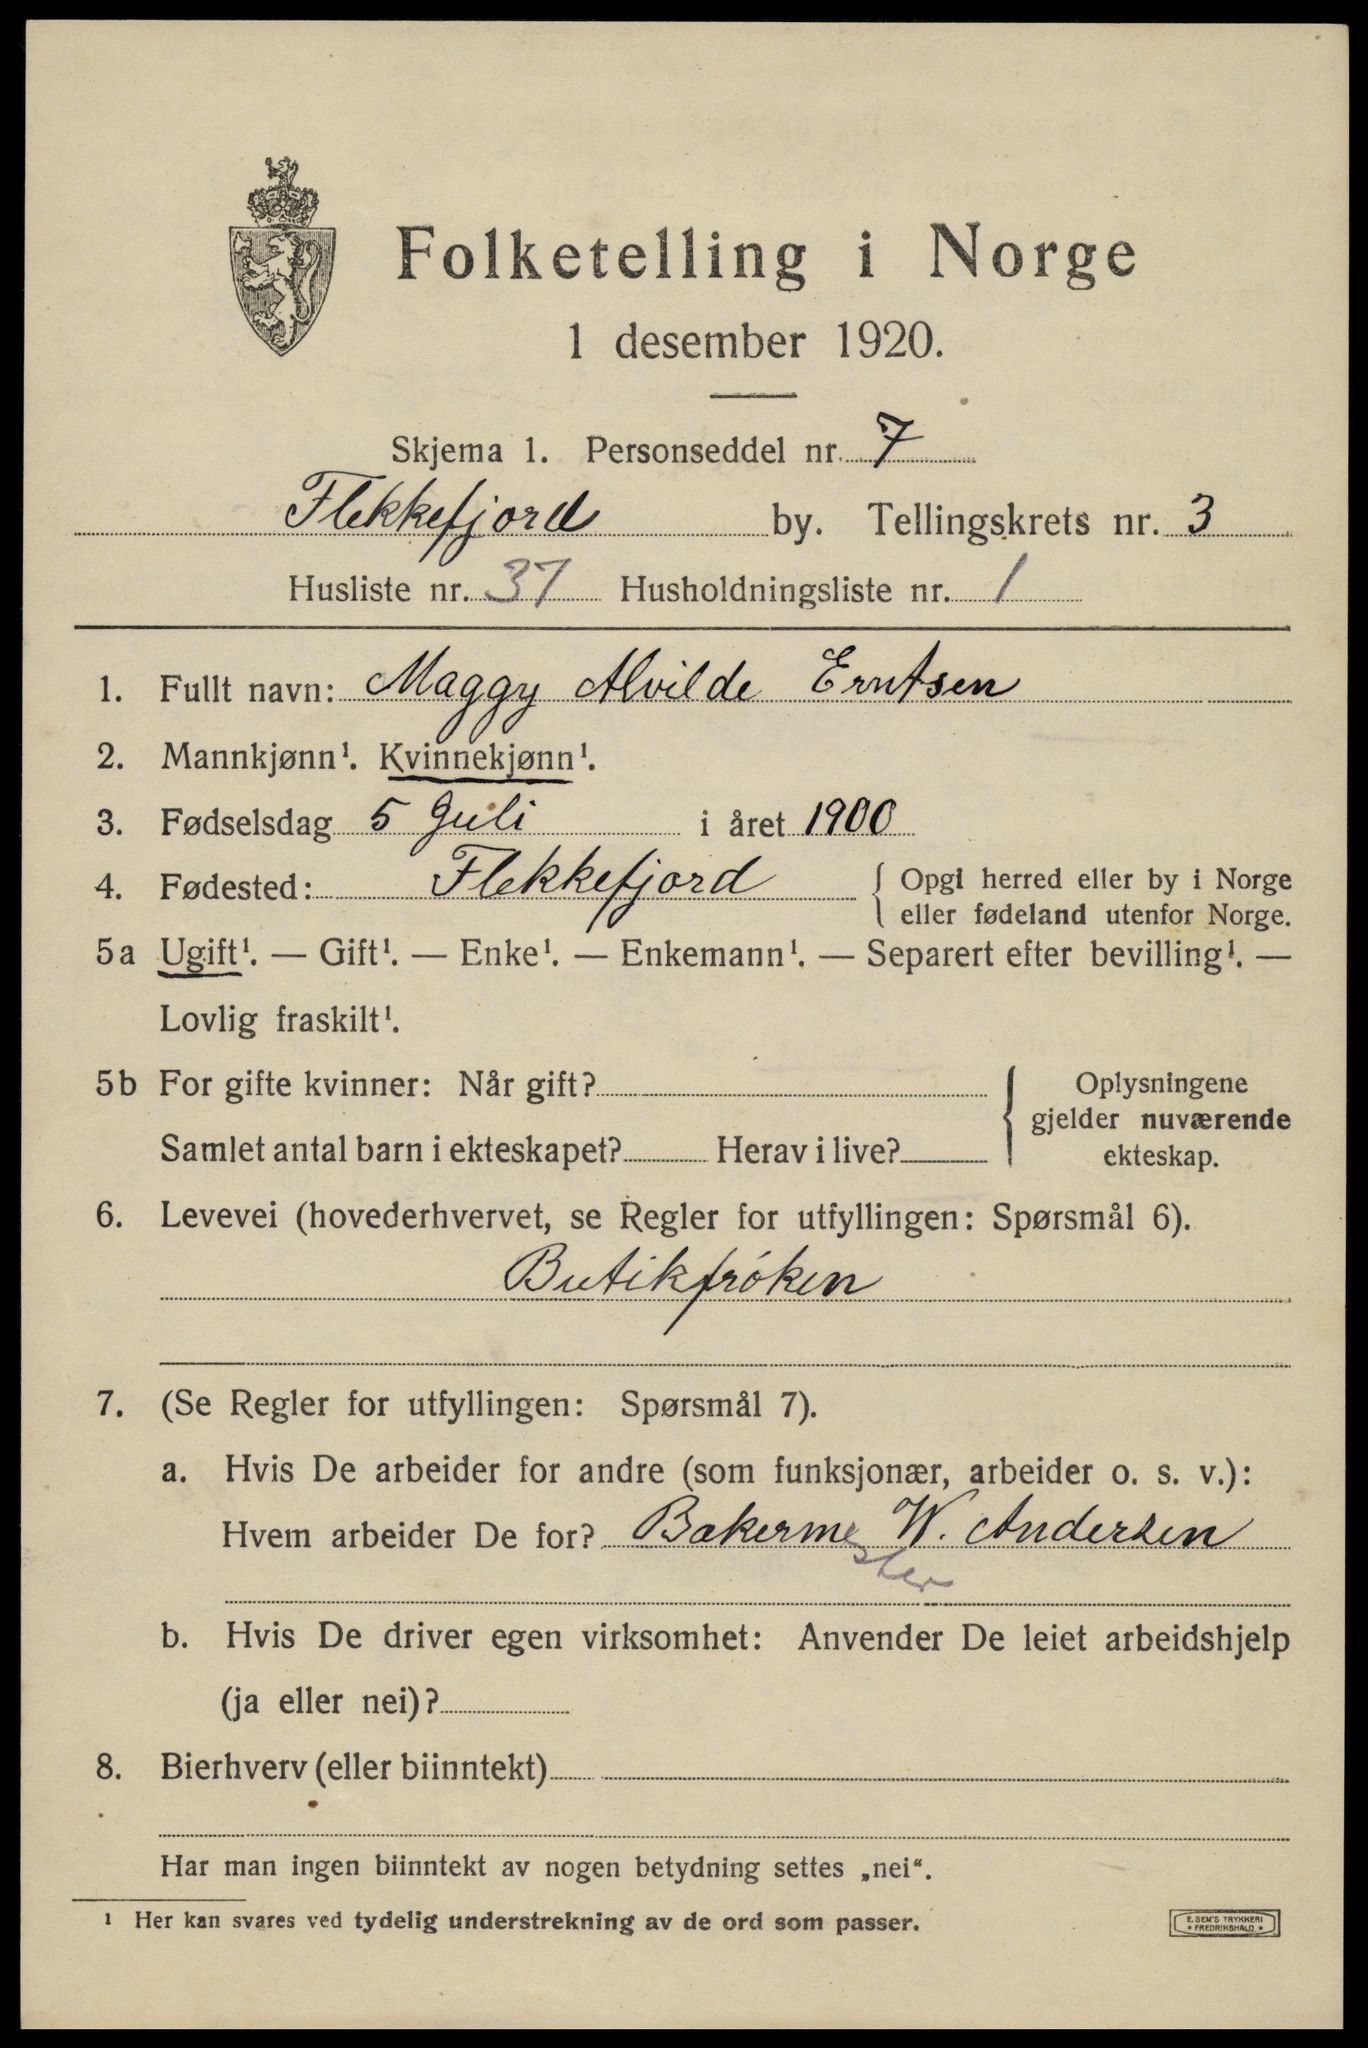 Folketelling i Norge
1 desember 1920.
Skjema 1. Personseddel nr. 7
Flekkefjord by. Tellingskrets nr. 3
Husliste nr. 37 Husholdningsliste nr. 1
1. Fullt navn: Maggy Alvilde Erntsen
2. Mannkjønn¹. Kvinnekjønn¹.
3. Fødselsdag 5 Juli i året 1900
4. Fødested: Flekkefjord { Opgi herred eller by i Norge
eller fødeland utenfor Norge.
5a Ugift¹. — Gift¹. — Enke¹. — Enkemann¹. — Separert efter bevilling¹. —
Lovlig fraskilt¹.
5b For gifte kvinner: Når gift? { Oplysningene
gjelder nuværende
Samlet antal barn i ekteskapet? Herav i live? ekteskap.
6. Levevei (hovederhvervet, se Regler for utfyllingen: Spørsmål 6).
Butikfróken
7. (Se Regler for utfyllingen: Spørsmål 7).
a. Hvis De arbeider for andre (som funksjonær, arbeider o. s. v.):
Hvem arbeider De for? Bakermester W. Andersen
b. Hvis De driver egen virksomhet: Anvender De leiet arbeidshjelp
(ja eller nei)?
8. Bierhverv (eller biinntekt)
Har man ingen biinntekt av nogen betydning settes „nei“.
¹ Her kan svares ved tydelig understrekning av de ord som passer.
E. SEM'S TRYKKERI
* FREDRIKSHALD *